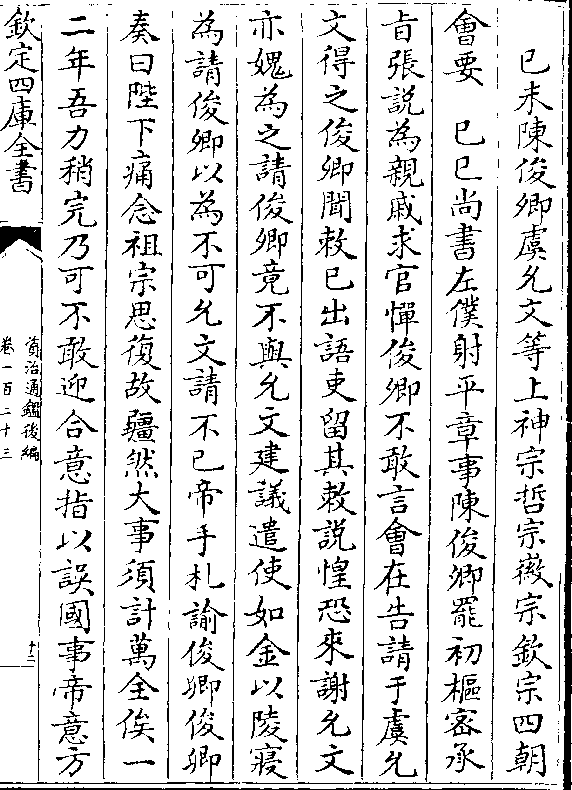 己未陳俊卿虞允文等上神宗哲宗徽宗欽宗四朝
會要　己巳尚書左僕射平章事陳俊卿罷初樞密承
旨張説為親戚求官憚俊卿不敢言會在告請于虞允
文得之俊卿聞敕已出語吏留其敕説惶恐來謝允文
亦媿為之請俊卿竟不與允文建議遣使如金以陵寢
為請俊卿以為不可允文請不已帝手札諭俊卿俊卿
奏曰陛下痛念祖宗思復故疆然大事須計萬全俟一
二年吾力稍完乃可不敢迎合意指以誤國事帝意方
欽定四庫全書
資治通鑑後編
卷一百二十三
十三